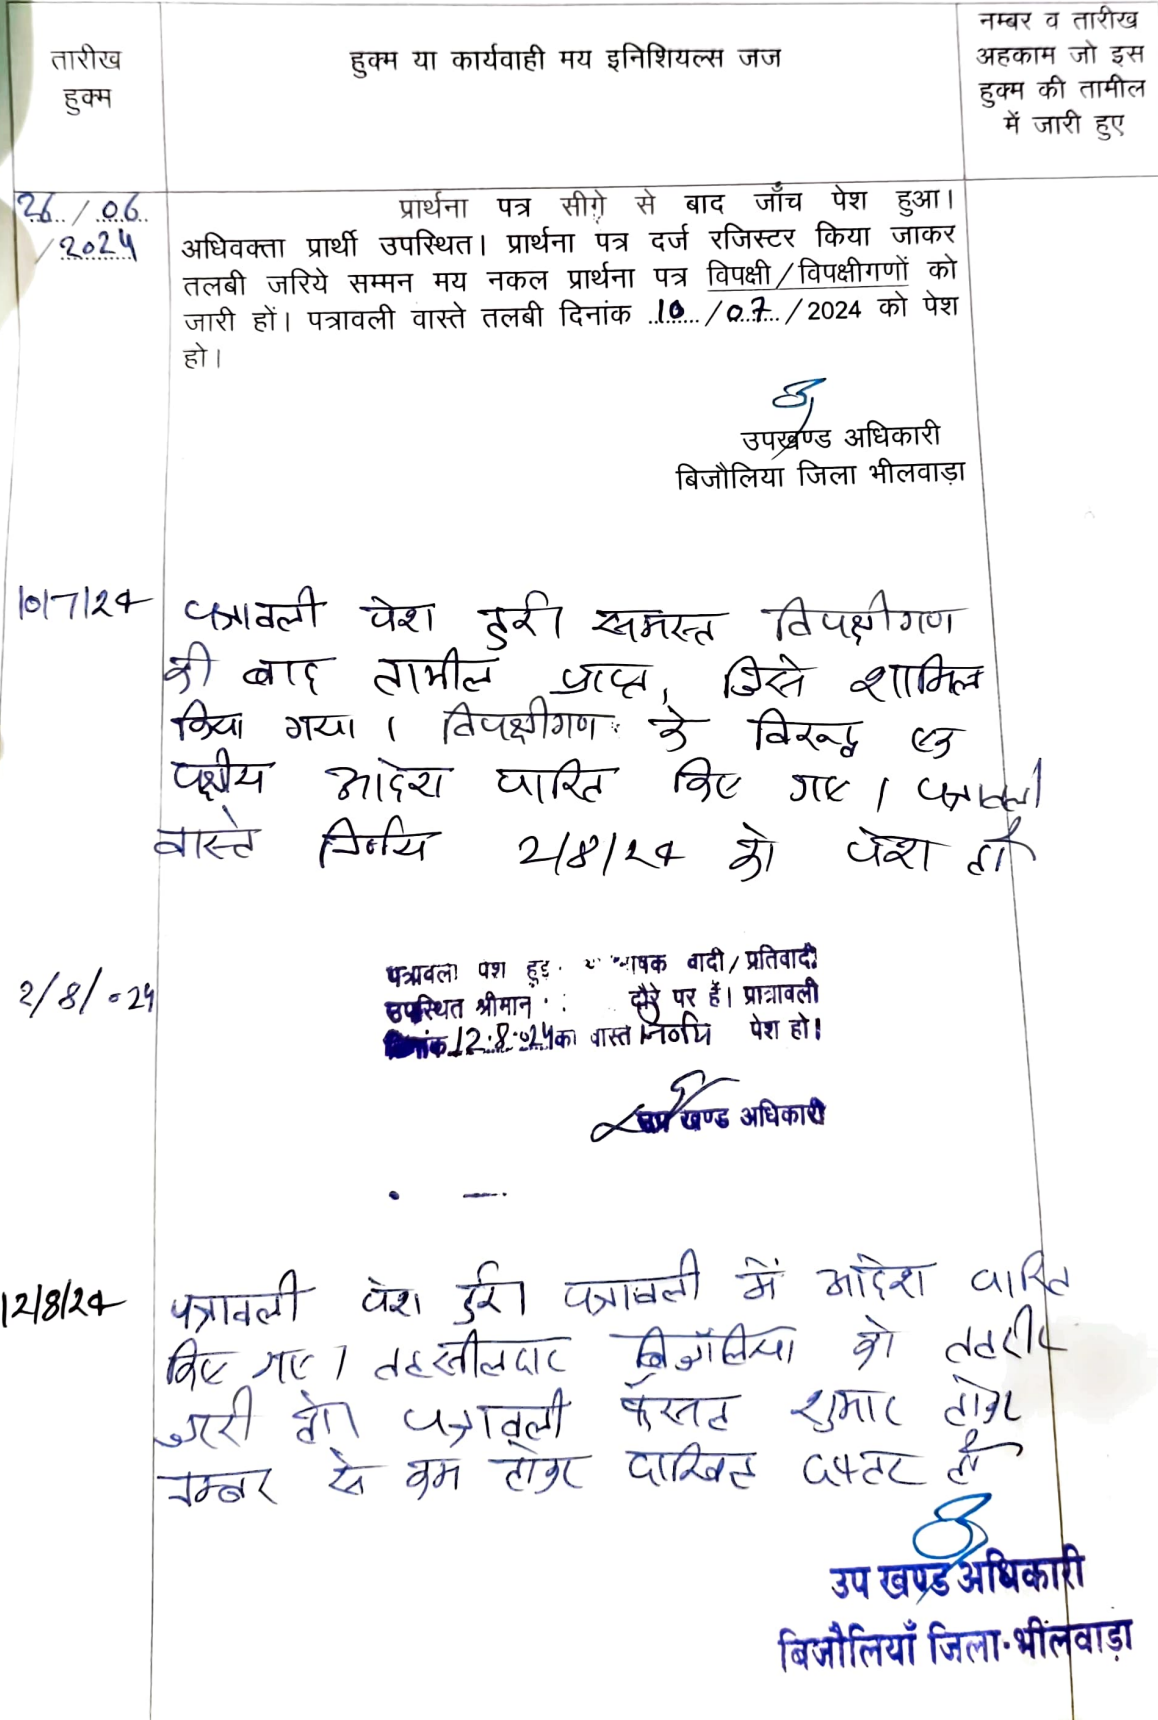 तारीख
हुक्म
हुक्म या कार्यवाही मय इनिशियल्स जज
नम्बर व तारीख
अहकाम जो इस
हुक्म की तामील
में जारी हुए
26/06
/2024
प्रार्थना पत्र सीगे़ से बाद जाँच पेश हुआ।
अधिवक्ता प्रार्थी उपस्थित। प्रार्थना पत्र दर्ज रजिस्टर किया जाकर
तलबी जरिये सम्मन मय नकल प्रार्थना पत्र विपक्षी/विपक्षीगणों को
जारी हों। पत्रावली वास्ते तलबी दिनांक 10/07/2024 को पेश
हो।
उपखण्ड अधिकारी
बिजौलिया जिला भीलवाड़ा
10/7/24
पत्रावली पेश हुई। समस्त विपक्षीगण
की बाद तामील प्राप्त, जिसे शामिल
किया गया। विपक्षीगण के विरूद्ध एक
पक्षीय आदेश पारित किए गए। पत्रावली
वास्ते निर्णय 2/8/24 को पेश हो
2/8/24
पत्रावली पेश हुई वादी/प्रतिवादी
उपस्थित श्रीमान दौरे पर हैं। प्रात्रावली
दिनांक 12.8.24 का वास्त निर्णय पेश हो।
उप खण्ड अधिकारी
12/8/24
पत्रावली पेश हुई। पत्रावली में आदेश पारित
किए गए। तहसीलदार बिजौलिया को तहरीर
जारी हो। पत्रावली फैसल शुमार होकर
नम्बर से कम होकर दाखिल दफ्तर हो
उप खण्ड अधिकारी
बिजौलियाँ जिला-भीलवाड़ा